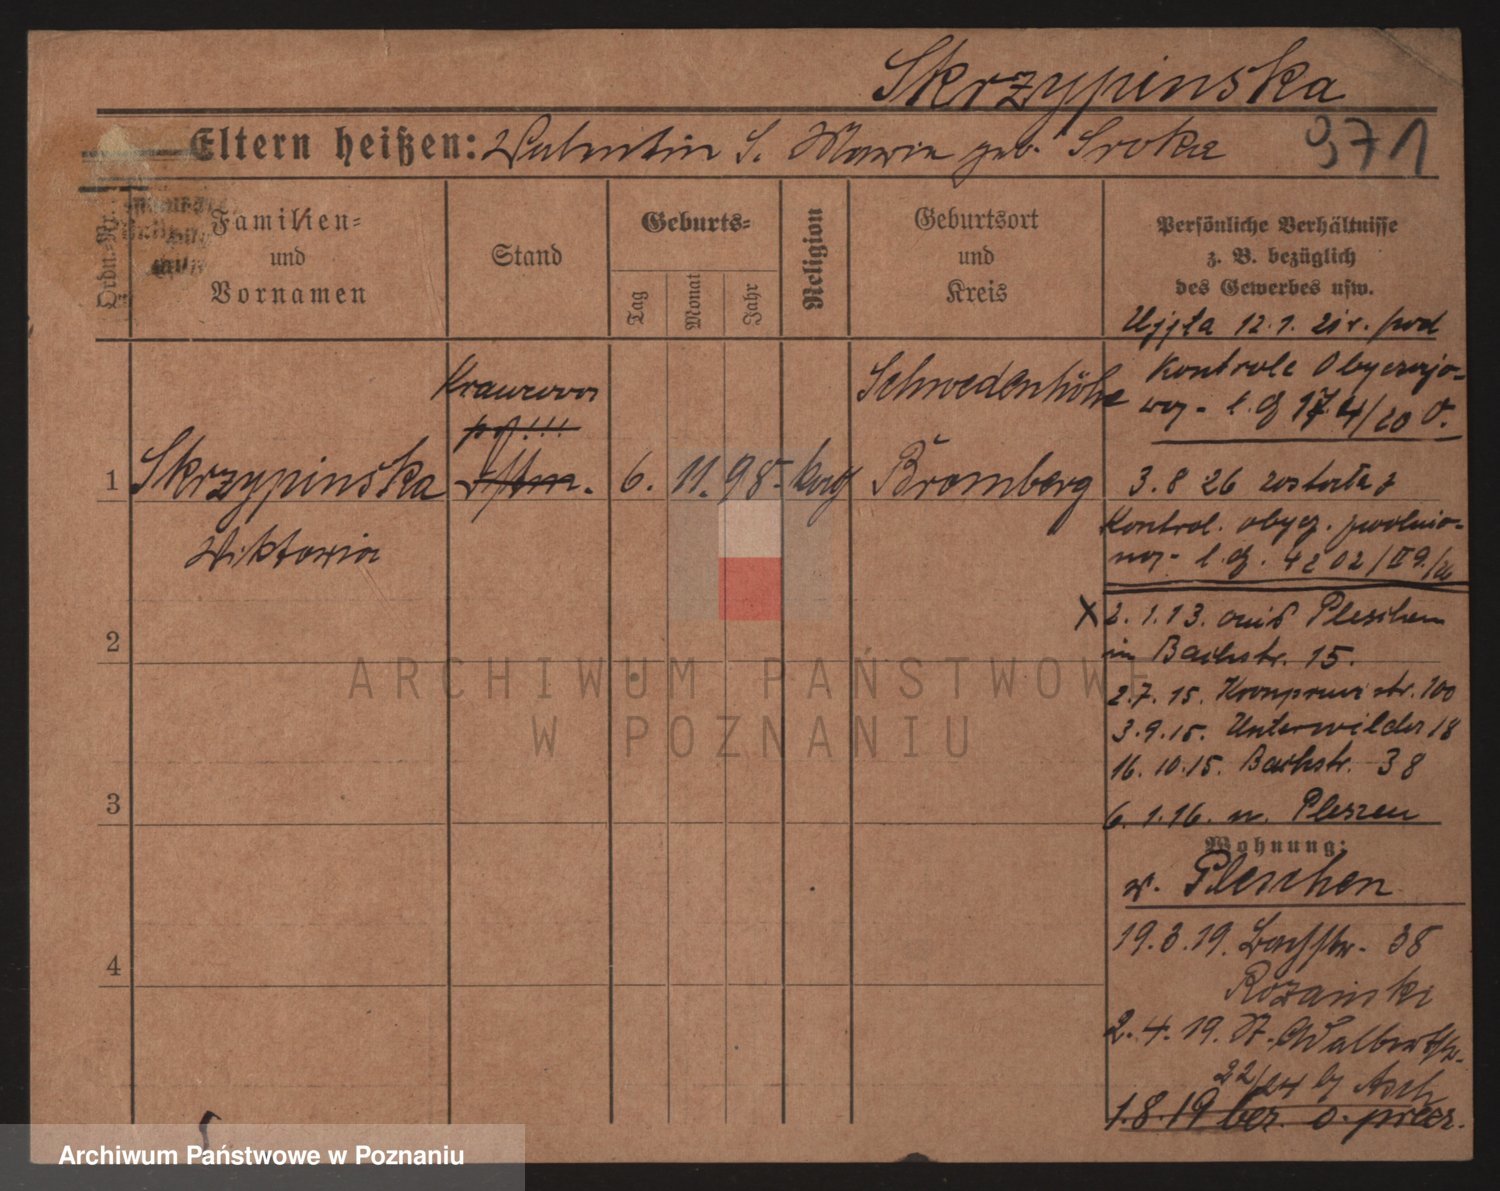 Skrzypinska
Eltern heißen: Valentin S. Maria geb. Sroka 371
Ordn.-Nr.
Familien-
und
Vornamen
Stand
Geburts-
Tag
Monat
Jahr
Religion
Geburtsort
und
Kreis
Persönliche Verhältnisse
z. B. bezüglich
des Gewerbes usw.
Ujęta 12.1. 21 r. pod
Kontrole Obyczajo-
wą - l. dz 174/20 O.
3. 8 26 została z
Kontrol. obycz. zwolnio-
ną - l. dz. 4202/II
x 2. 1. 13. aus Pleschen
in Bachstr. 15.
2. 7. 15. Kronprinz str. 100
3. 9. 15. Unterwilda 18
16. 10. 15. Bachstr. 38
6. 1. 16. n. Pleszen
Krawcowa
1 Skrzypinska
Wiktoria
6. 11. 98. kath
Schwedenhöhe
Bromberg
2
3
4
Wohnung:
n. Pleschen
19. 3. 19. Bachstr. 38
Rozanski
2. 4. 19. St.
22/24 b/ Asch
1. 8. 19 bez. o. prez.
ARCHIWUM PAŃSTWOWE
W POZNANIU
Archiwum Państwowe w Poznaniu